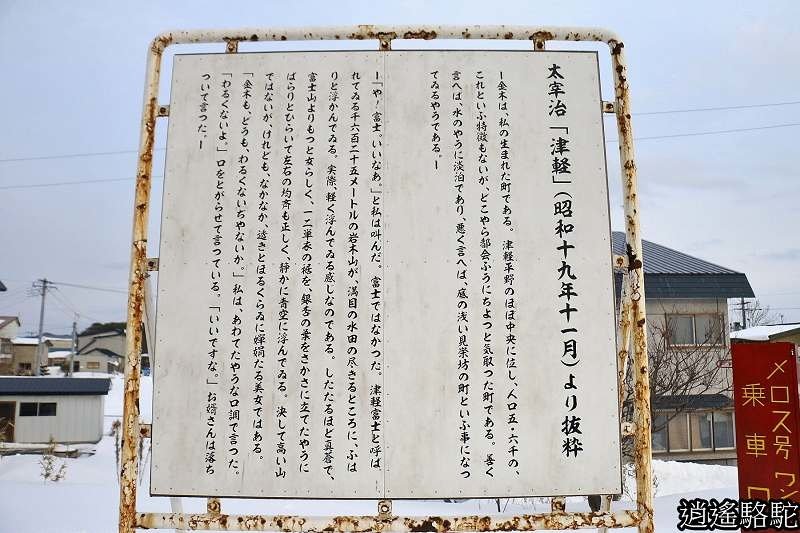 太宰治「津軽」(昭和十九年十一月)より抜粋
ー金木は、私の生まれた町である。津軽平野のほぼ中央に位し、人口五・六千の、
これといふ特徴もないが、どこやら都会ふうにちよつと気取つた町である。善く
言へば、水のやうに淡泊であり、悪く言へば、底の浅い見栄坊の町といふ事になつ
てゐるやうである。ー
ー「や！富士。いいなあ。」と私は叫んだ。富士ではなかつた。津軽富士と呼ば
れてゐる千六百二十五メートルの岩木山が、満目の水田の尽きるところに、ふは
りと浮かんでゐる。実際、軽く浮んでゐる感じなのである。したたるほど真蒼で、
富士山よりもつと女らしく、十二単衣の裾を、銀杏の葉をさかさに立てたやうに
ぱらりとひらいて左右の均斉も正しく、静かに青空に浮んでゐる。決して高い山
ではないが、けれども、なかなか、透きとほるくらゐに嬋娟たる美女ではある。
「金木も、どうも、わるくないぢやないか。」私は、あわてたやうな口調で言つた。
「わるくないよ。」口をとがらせて言つている。「いいですな。」お婿さんは落ち
ついて言つた。ー
メロス号 ワン
乗車口
逍遙駱駝